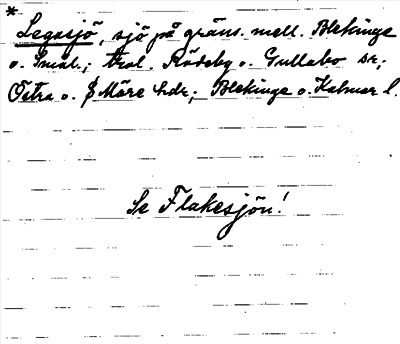 *
Legasjö, sjö på gräns. mell. Blekinge
o. Smål.; trol. Rödeby o. Gullabo sr,
Östra o. S Möre hdr; Blekinge o. Kalmar l.
Se Flakesjön!